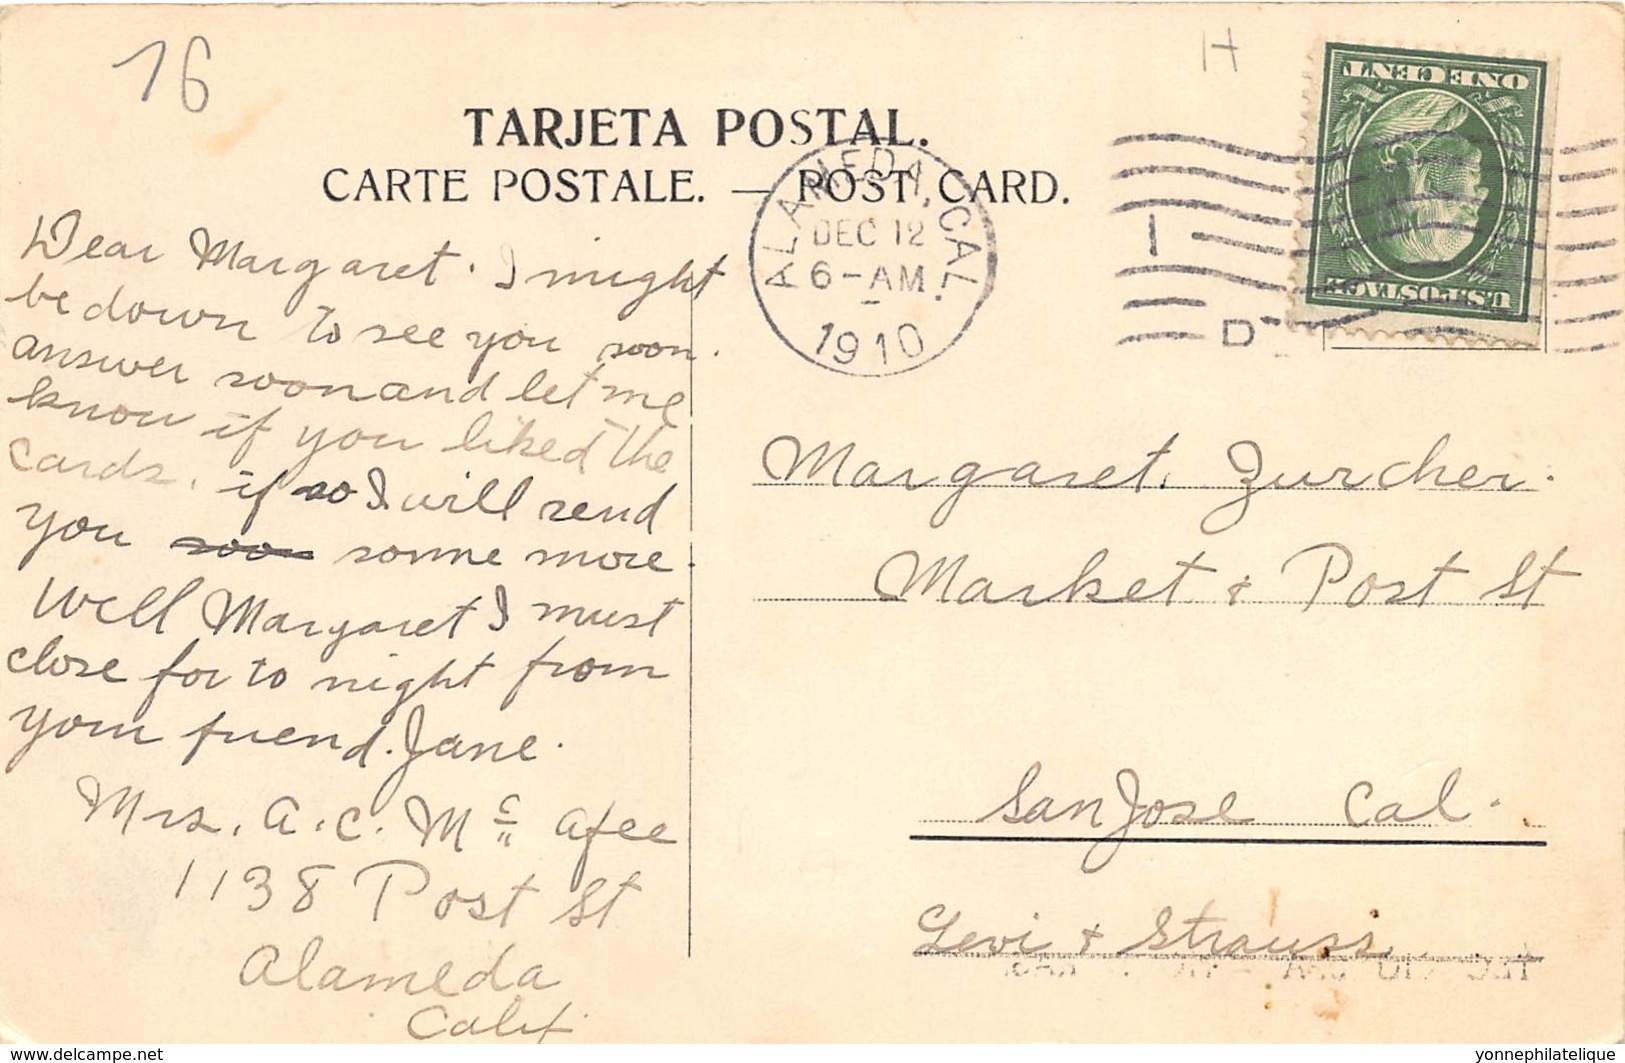 16
H
ONE CENT
U.S. POSTAGE
TARJETA POSTAL.
CARTE POSTALE. — POST CARD.
ALAMEDA, CAL.
DEC 12
6-AM.
1910
1
D
Dear Margaret. I might
be down to see you soon.
answer soon and let me
know if you liked the
cards. if so I will send
you soon some more.
Well Margaret I must
close for to night from
your friend. Jane.
Mrs. A. C. Mc Afee
1138 Post St
Alameda
Calif.
Margaret. Zurcher.
Market & Post St
San Jose Cal.
Levi & Strauss.
www.delcampe.net
yonnephilatelique